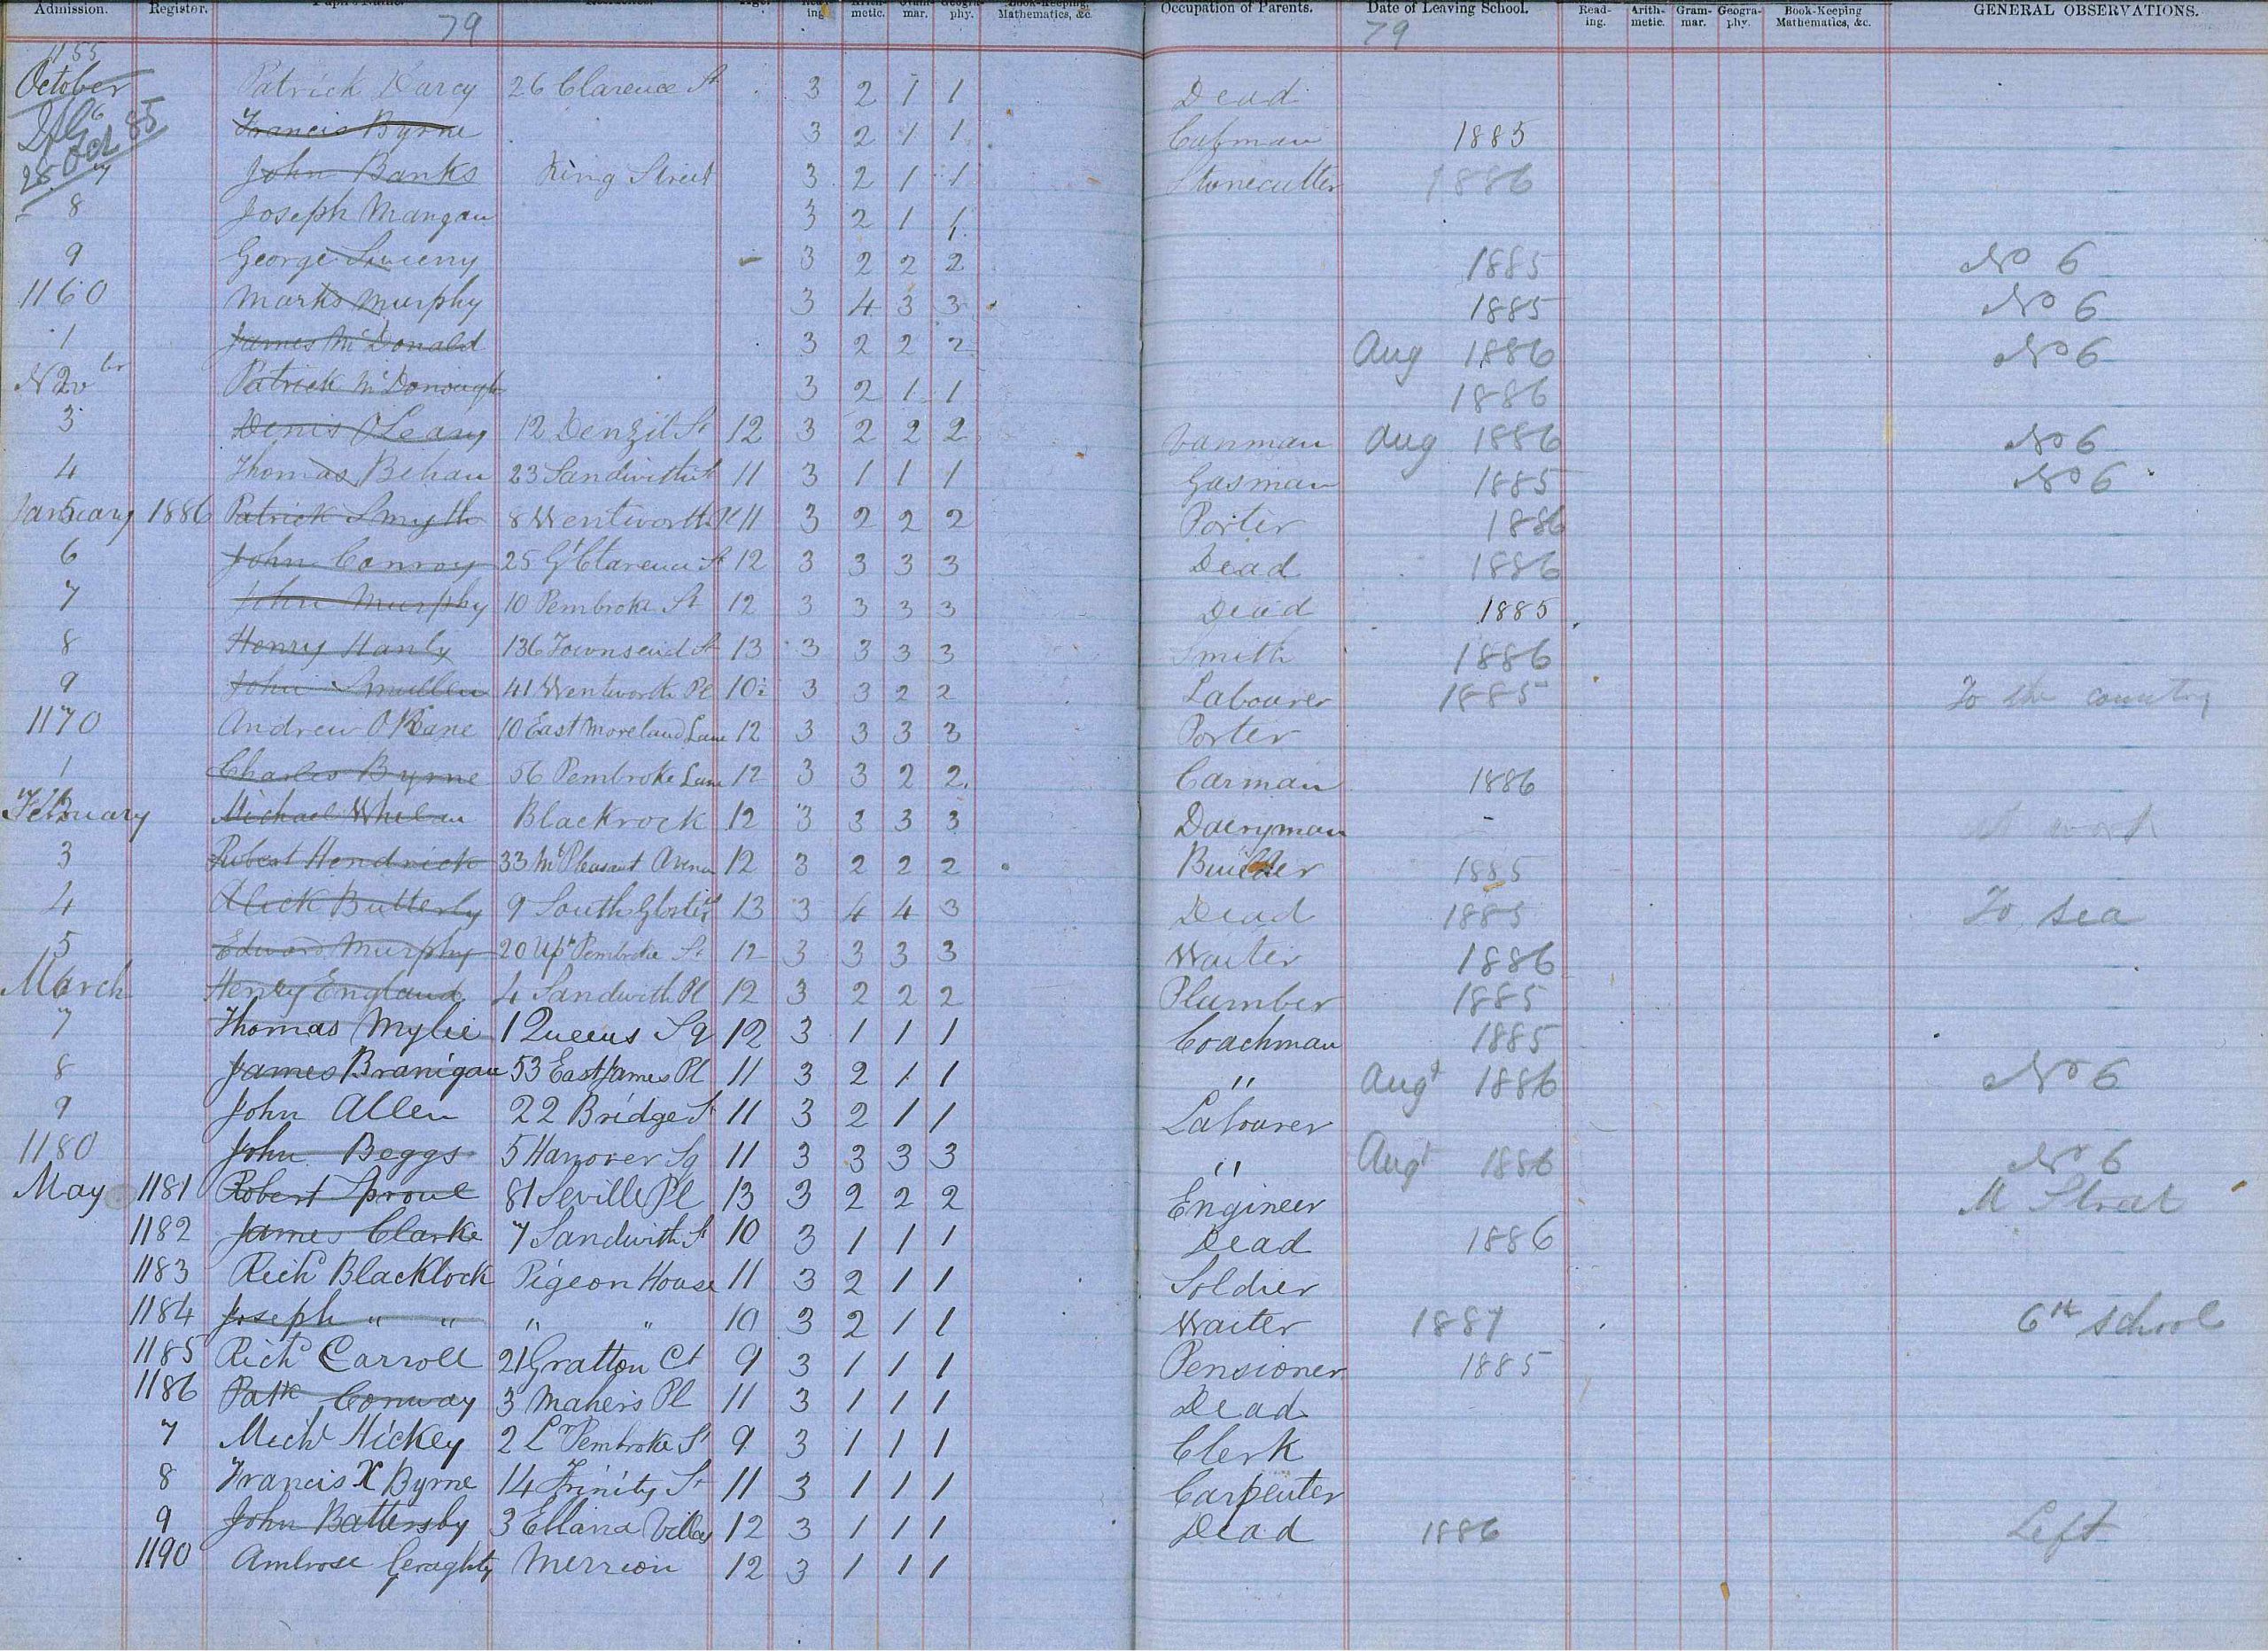 Admission. Register. Pupil's Name. Residence. Age. Read-ing Arith-metic. Gram-mar. Geogra-phy. Book-Keeping, Mathematics, &c. Occupation of Parents. Date of Leaving School. Read-ing. Arith-metic. Gram-mar. Geogra-phy. Book-Keeping Mathematics, &c. GENERAL OBSERVATIONS.
79 79
1155
October Patrick Darcy 26 Clarence St 3 2 1 1 Dead
6 Francis Byrne 3 2 1 1 Cabman 1885
28 Oct 85
7 John Banks King Street 3 2 1 1 Stonecutter 1886
8 Joseph Mangan 3 2 1 1
9 George Sweeny 3 2 2 2 1885 No 6
1160 Marks Murphy 3 4 3 3 1885 No 6
1 James McDonald 3 2 2 2 Aug 1886 No 6
Novbr 2 Patrick McDonough 3 2 1 1 1886
3 Denis O'Leary 12 Denzil St 12 3 2 2 2 Vanman Aug 1886 No 6
4 Thomas Behan 23 Sandwith St 11 3 1 1 1 Gasman 1885 No 6
January 5 1886 Patrick Smyth 8 Wentworth Pl 11 3 2 2 2 Porter 1886
6 John Conroy 25 Gt Clarence St 12 3 3 3 3 Dead 1886
7 John Murphy 10 Pembroke St 12 3 3 3 3 Dead 1885
8 Henry Hanly 136 Townsend St 13 3 3 3 3 Smith 1886
9 John Smullen 41 Wentworth Pl 10 3 3 2 2 Labourer 1885 To the country
1170 Andrew O'Kane 10 East Moreland Lane 12 3 3 3 3 Porter
1 Charles Byrne 56 Pembroke Lane 12 3 3 2 2 Carman 1886
February 2 Michael Whelan Blackrock 12 3 3 3 3 Daeryman - at work
3 Robert Hendrick 33 Mt Pleasant Avenue 12 3 2 2 2 Builder 1885
4 Alick Butterly 9 South Gloster St 13 3 4 4 3 Dead 1885 To sea
5 Edward Murphy 20 Upr Pembroke St 12 3 3 3 3 Waiter 1886
March 6 Henry England 4 Sandwith Pl 12 3 2 2 2 Plumber 1885
7 Thomas Mylie 1 Queens Sq 12 3 1 1 1 Coachman 1885
8 James Branigan 53 East James Pl 11 3 2 1 1 " Augt 1886 No 6
9 John Allen 22 Bridge St 11 3 2 1 1 Labourer
1180 John Beggs 5 Hanover Sq 11 3 3 3 3 " Augt 1886 No 6
May 1181 Robert Sproul 81 Seville Pl 13 3 2 2 2 Engineer M Strat
1182 James Clarke 7 Sandwith St 10 3 1 1 1 Dead 1886
1183 Richd Blacklock Pigeon House 11 3 2 1 1 Soldier
1184 Joseph " " " " 10 3 2 1 1 Waiter 1887 6th school
1185 Richd Carroll 21 Grattan Ct 9 3 1 1 1 Pensioner 1885
1186 Patk Conway 3 Mahers Pl 11 3 1 1 1 Dead
7 Michl Hickey 2 Lr Pembroke St 9 3 1 1 1 Clerk
8 Francis X Byrne 14 Trinity St 11 3 1 1 1 Carpenter
9 John Battersby 3 Ellana Villas 12 3 1 1 1 Dead 1886 Left
1190 Ambrose Geraghty Merrion 12 3 1 1 1